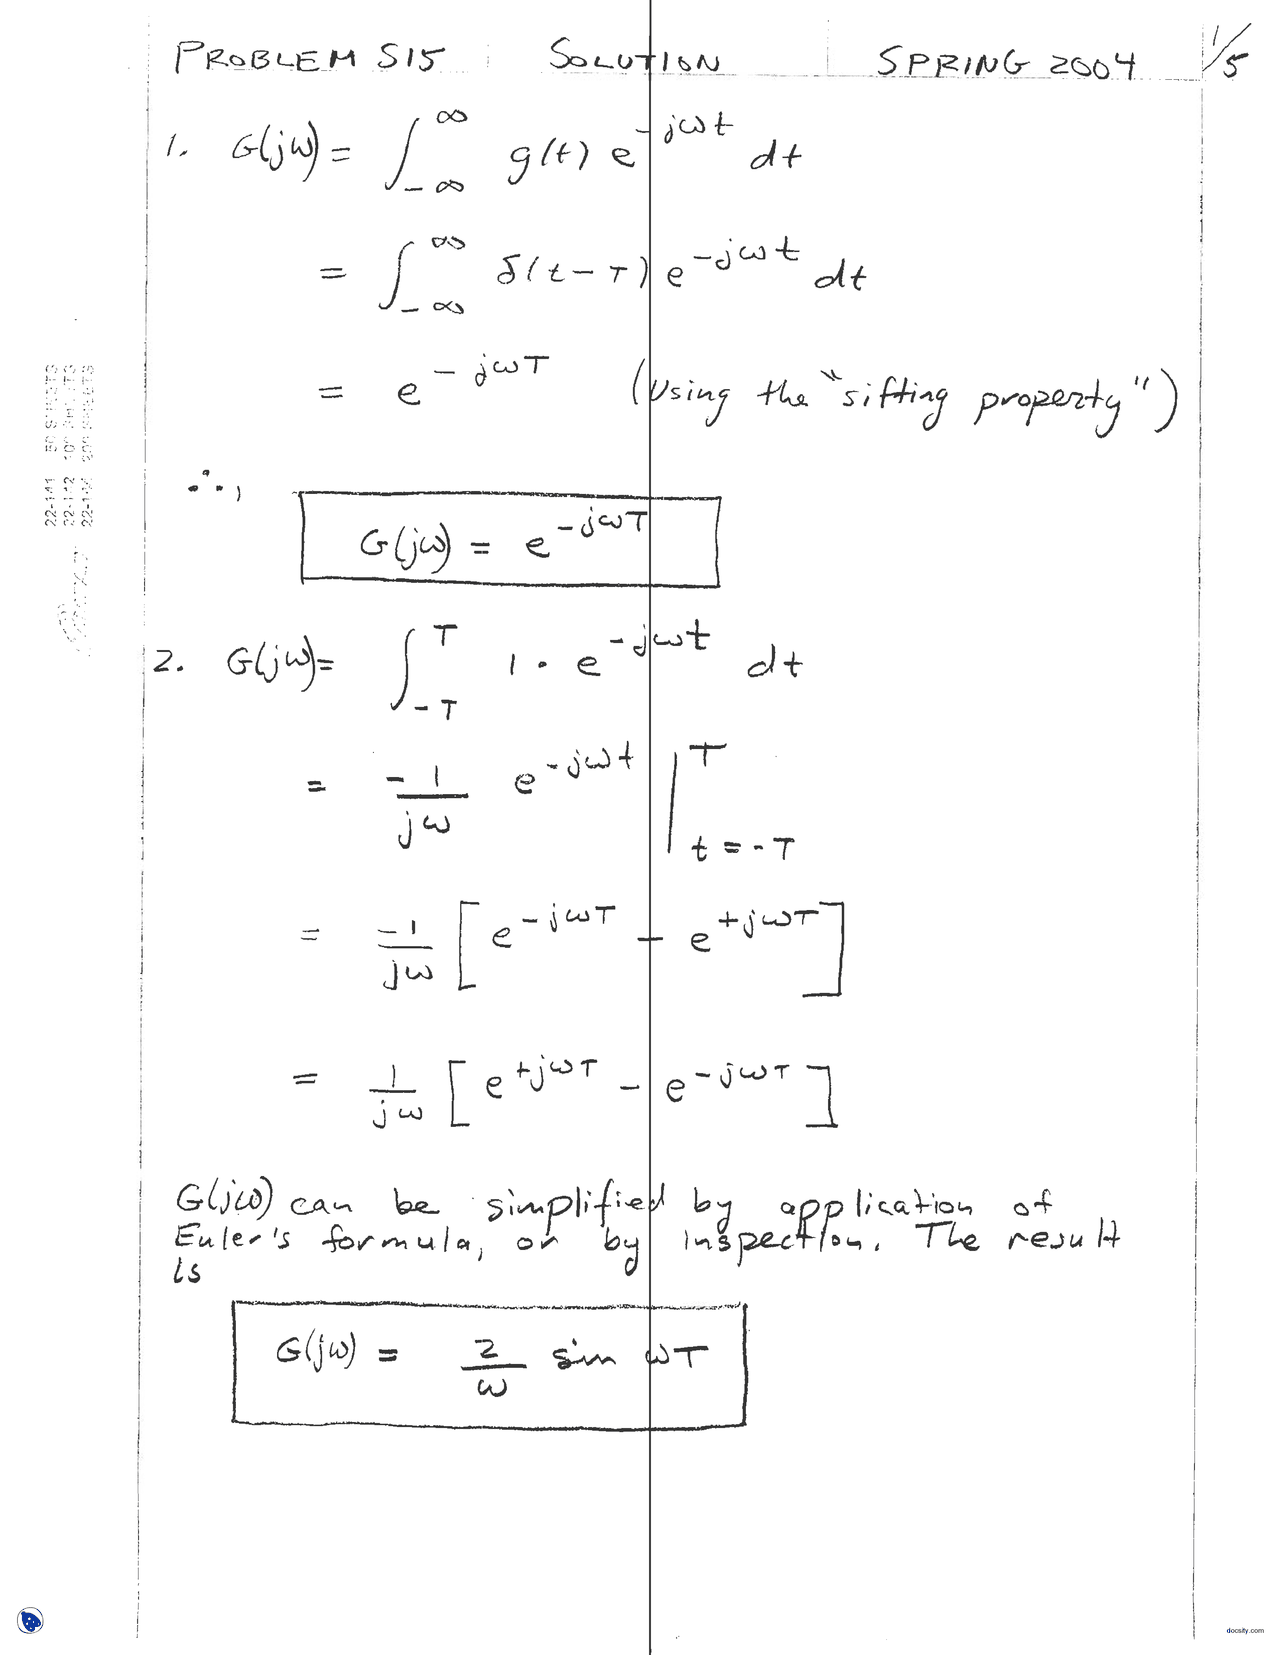 PROBLEM S15 SOLUTION SPRING 2004 1/5
1. G(jω) = ∫_{-∞}^{∞} g(t) e^{-jωt} dt
= ∫_{-∞}^{∞} δ(t-T) e^{-jωt} dt
= e^{-jωT} (Using the "sifting property")
∴,
G(jω) = e^{-jωT}
2. G(jω) = ∫_{-T}^{T} 1 · e^{-jωt} dt
= -1/jω e^{-jωt} |_{t=-T}^{T}
= -1/jω [e^{-jωT} - e^{+jωT}]
= 1/jω [e^{+jωT} - e^{-jωT}]
G(jω) can be simplified by application of
Euler's formula, or by inspection. The result
is
G(jω) = 2/ω sin ωT
22-141
22-142
22-144
docsity.com